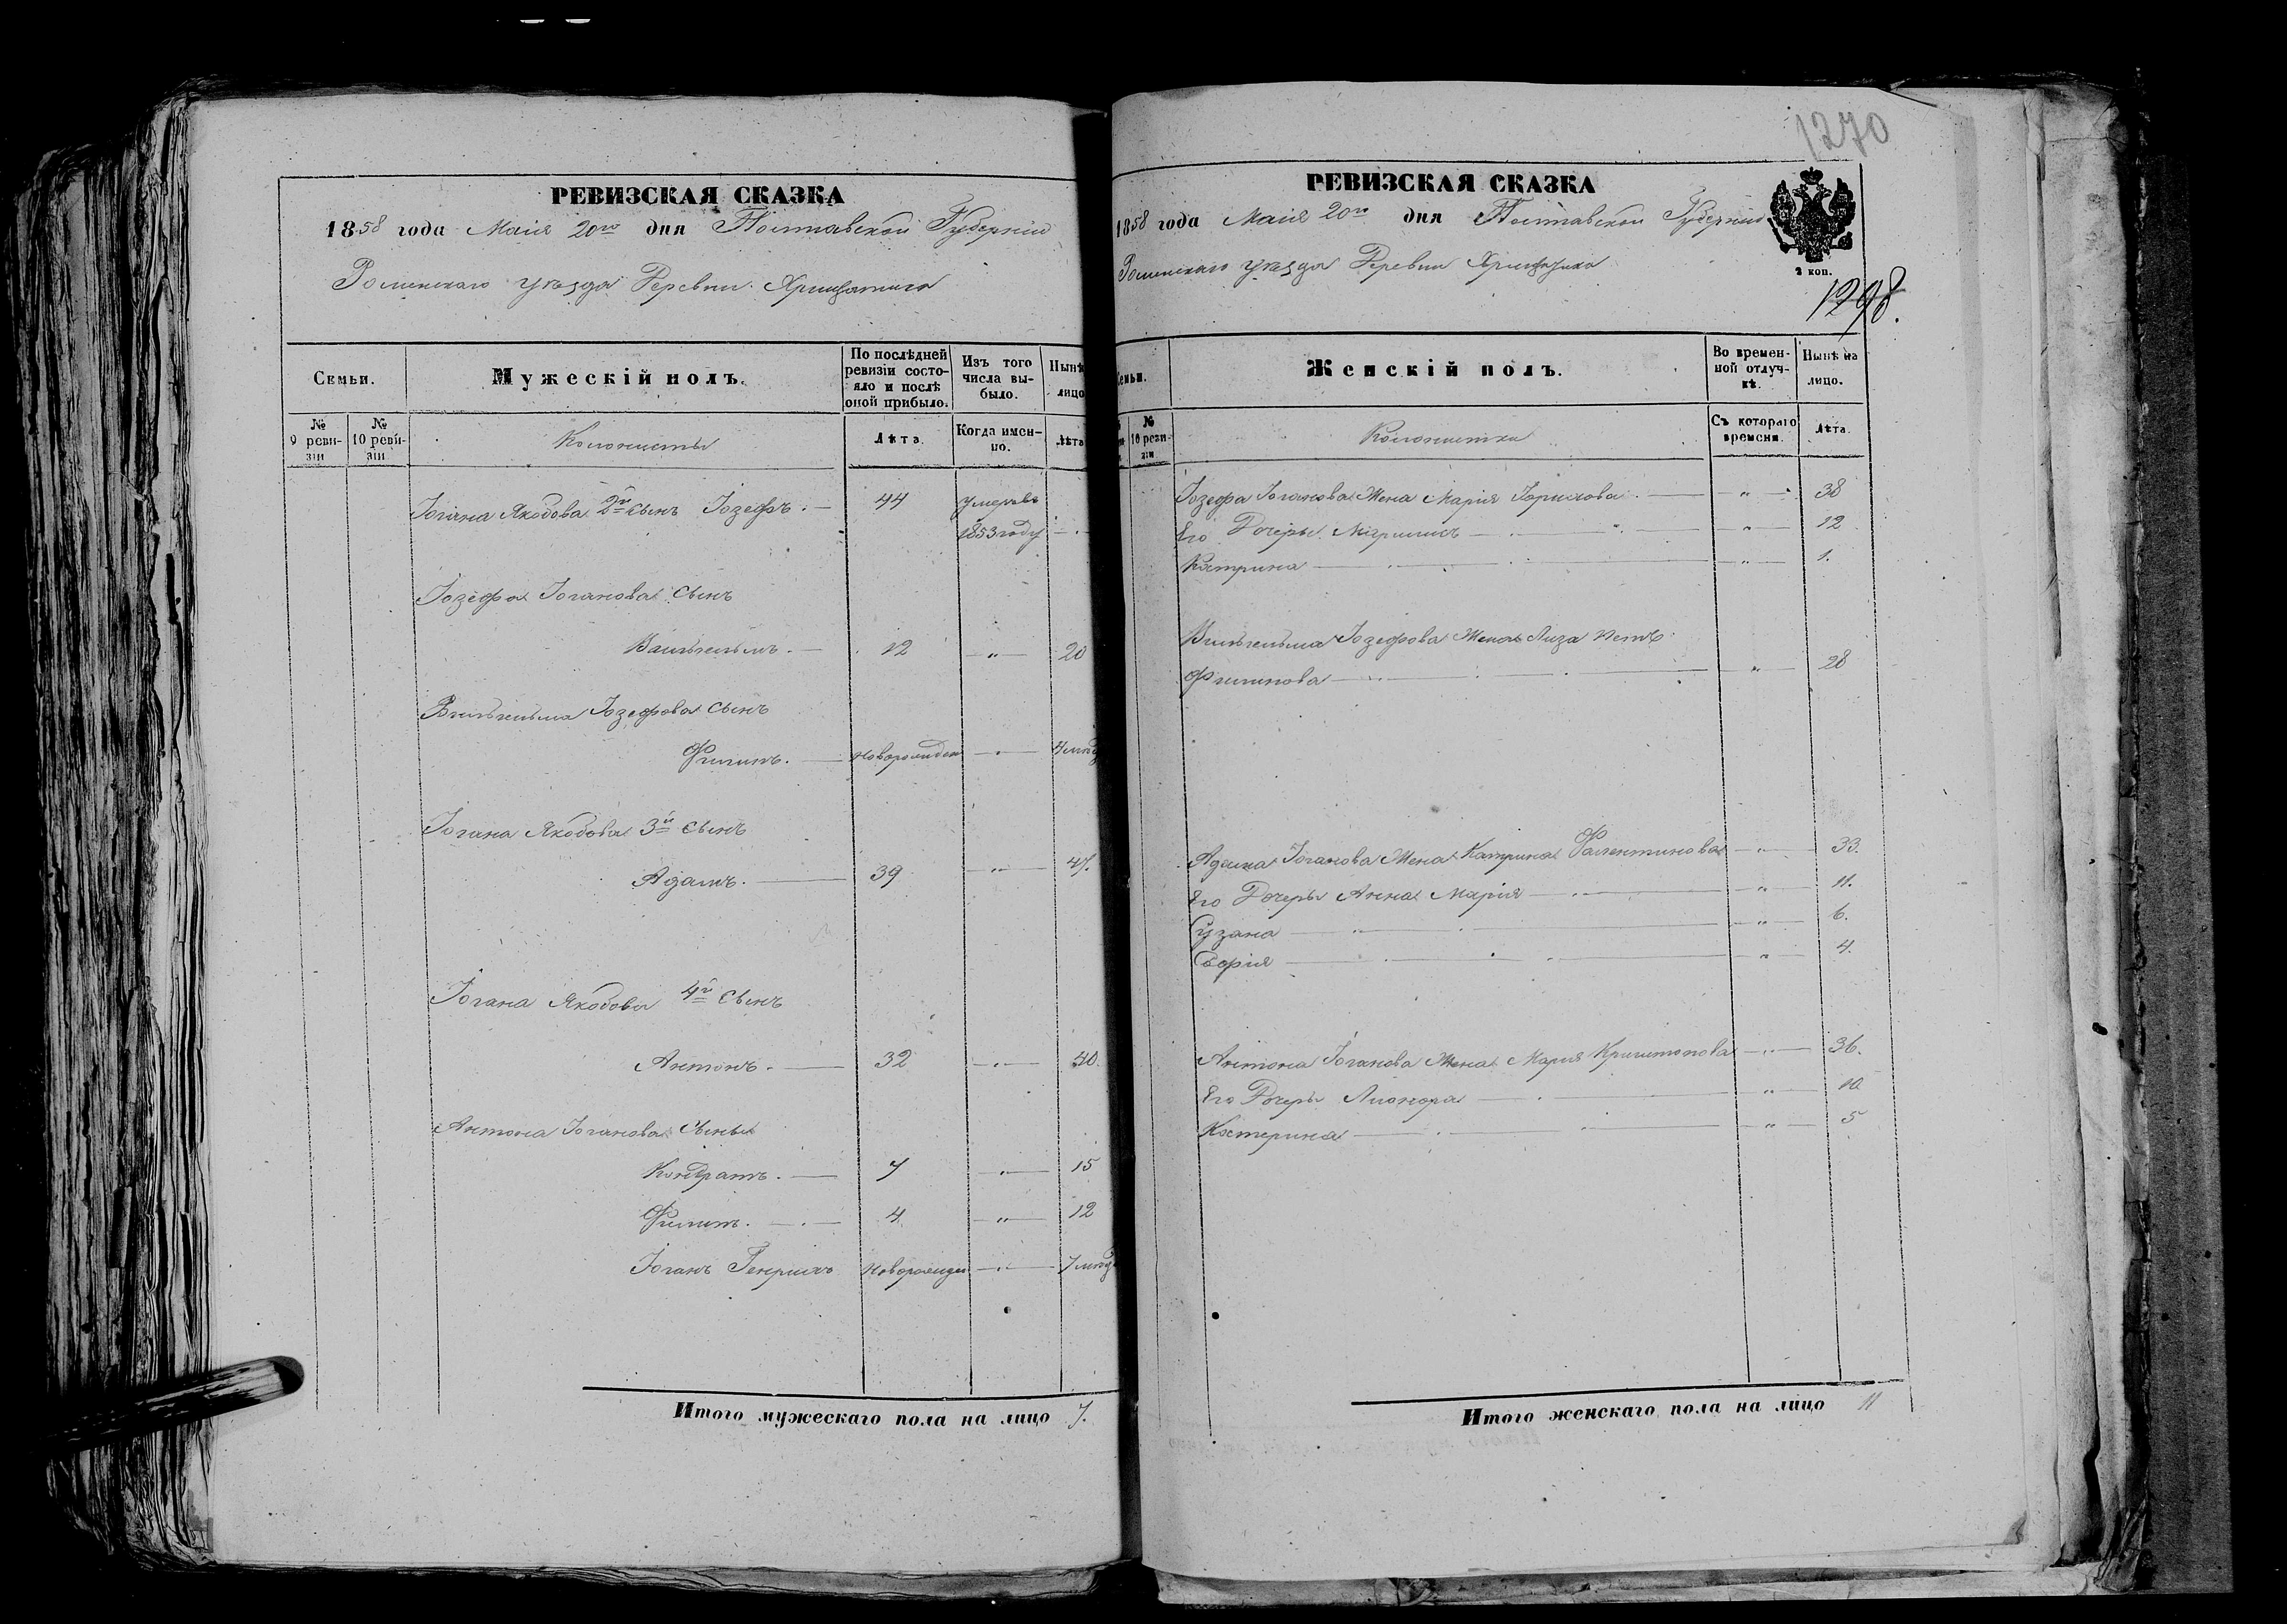 РЕВИЗСКАЯ СКАЗКА
1858 года Маія 20го дня Полтавской Губерніи
Роменскаго уѣзда Деревни
Семьи.
Мужескій полъ.
По послѣдней ревизіи состояло и послѣ оной прибыло.
Изъ того числа выбыло.
Нынѣ лицо
№ 9 ревизіи
№ 10 ревизіи
Колонисты
Лѣта.
Когда именно.
Лѣта
Іогана Якобова 2й сынъ Іозефъ. 44 Умеръ въ
1853 году
Іозефа Іоганова сынъ
Вильгельмъ. 12 „ 20
Вильгельма Іозефова сынъ
Филипъ. новорожден „ 4
Іогана Якобова 3й сынъ
Адамъ. 39 „ 47.
Іогана Якобова 4й сынъ
Антонъ. 32 „ 40.
Антона Іоганова сыны
Кондратъ. 7 „ 15
Филипъ. 4 „ 12
Іоганъ Генрихъ новорожден „ 7
Итого мужескаго пола на лицо 7.
1270
РЕВИЗСКАЯ СКАЗКА
1858 года Маія 20го дня Полтавской Губерніи
2 коп.
Роменскаго уѣзда Деревни
1298.
Семьи.
Женскій полъ.
Во временной отлучкѣ.
Нынѣ на лицо.
№ 10 ревизіи
Колонистки
Съ котораго времени.
Лѣта.
Іозефа Іоганова Жена Марія „ 38
Его Дочеры „ 12
Катрина „ 1.
Вильгельма Іозефова Жена Лиза
Филипова „ 28
Адама Іоганова Жена Катрина Фалентинова „ 33.
Его Дочеры Анна Марія „ 11.
Сузана „ 6.
Софія „ 4.
Антона Іоганова Жена Марія Криштопова „ 36.
Его Дочеры Лионора „ 10
Катерина „ 5
Итого женскаго пола на лицо 11